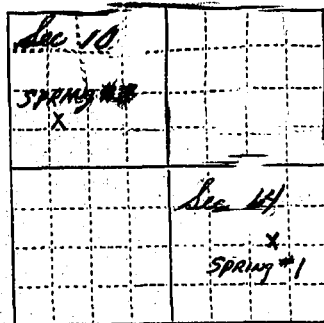 Sec 10
SPRING #
X
Sec 14
X
SPRING #1